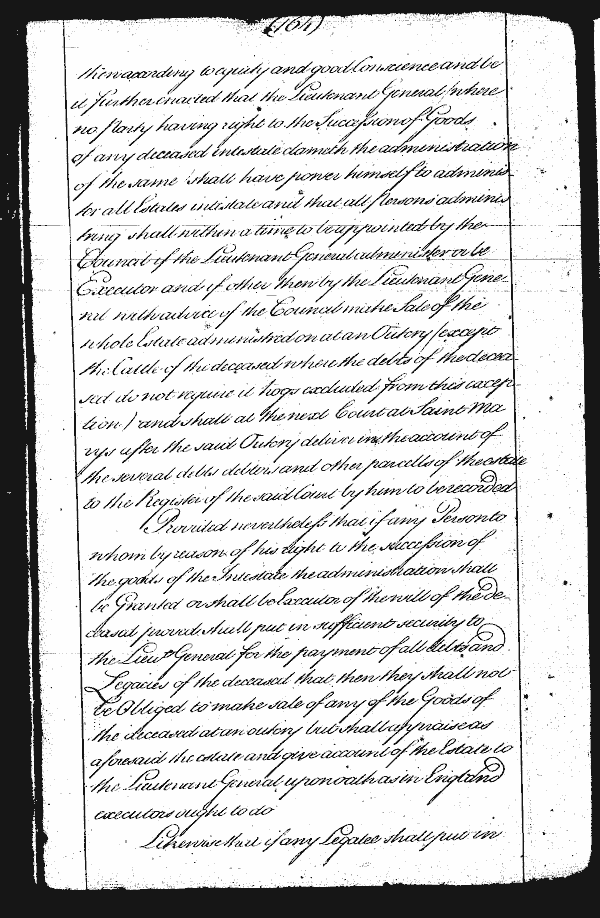 (164)
then according to equity and good Conscience and be
it further enacted that the Lieutenant General (where
no Party having right to the Succession of Goods
of any deceased intestate dameth the administration
of the same shall have power himself to adminis-
ter all Estates intestate and that all Persons adminis
tring shall within a time to be appointed by the
Council of the Lieutenant General administer or be
Executor and if other then by the Lieutenant Gene-
ral with advice of the Council make Sale of the
whole Estate administred on at an Outcry (except
the Cattle of the deceased where the debts of the decea-
sed do not require it hogs excluded from this excep-
tion) and shall at the next Court at Saint Ma
rys after the said Outcry deliver in the account of
the several debts debtors and other parcells of the estate
to the Register of the said Court by him to be recorded
Provided nevertheless that if any Person to
whom by reason of his right to the succession of
the goods of the Intestate the administration shall
be Granted or shall be Executor of the will of the de-
ceased proved shall put in sufficient security to
the Lieut General for the payment of all debts and
Legacies of the deceased that then they shall not
be Obliged to make sale of any of the Goods of
the deceased at an outcry but shall appraise as
aforesaid the estate and give account of the Estate to
the Lieutenant General upon oath as in England
executors ought to do
Likewise that if any Legatee shall put in